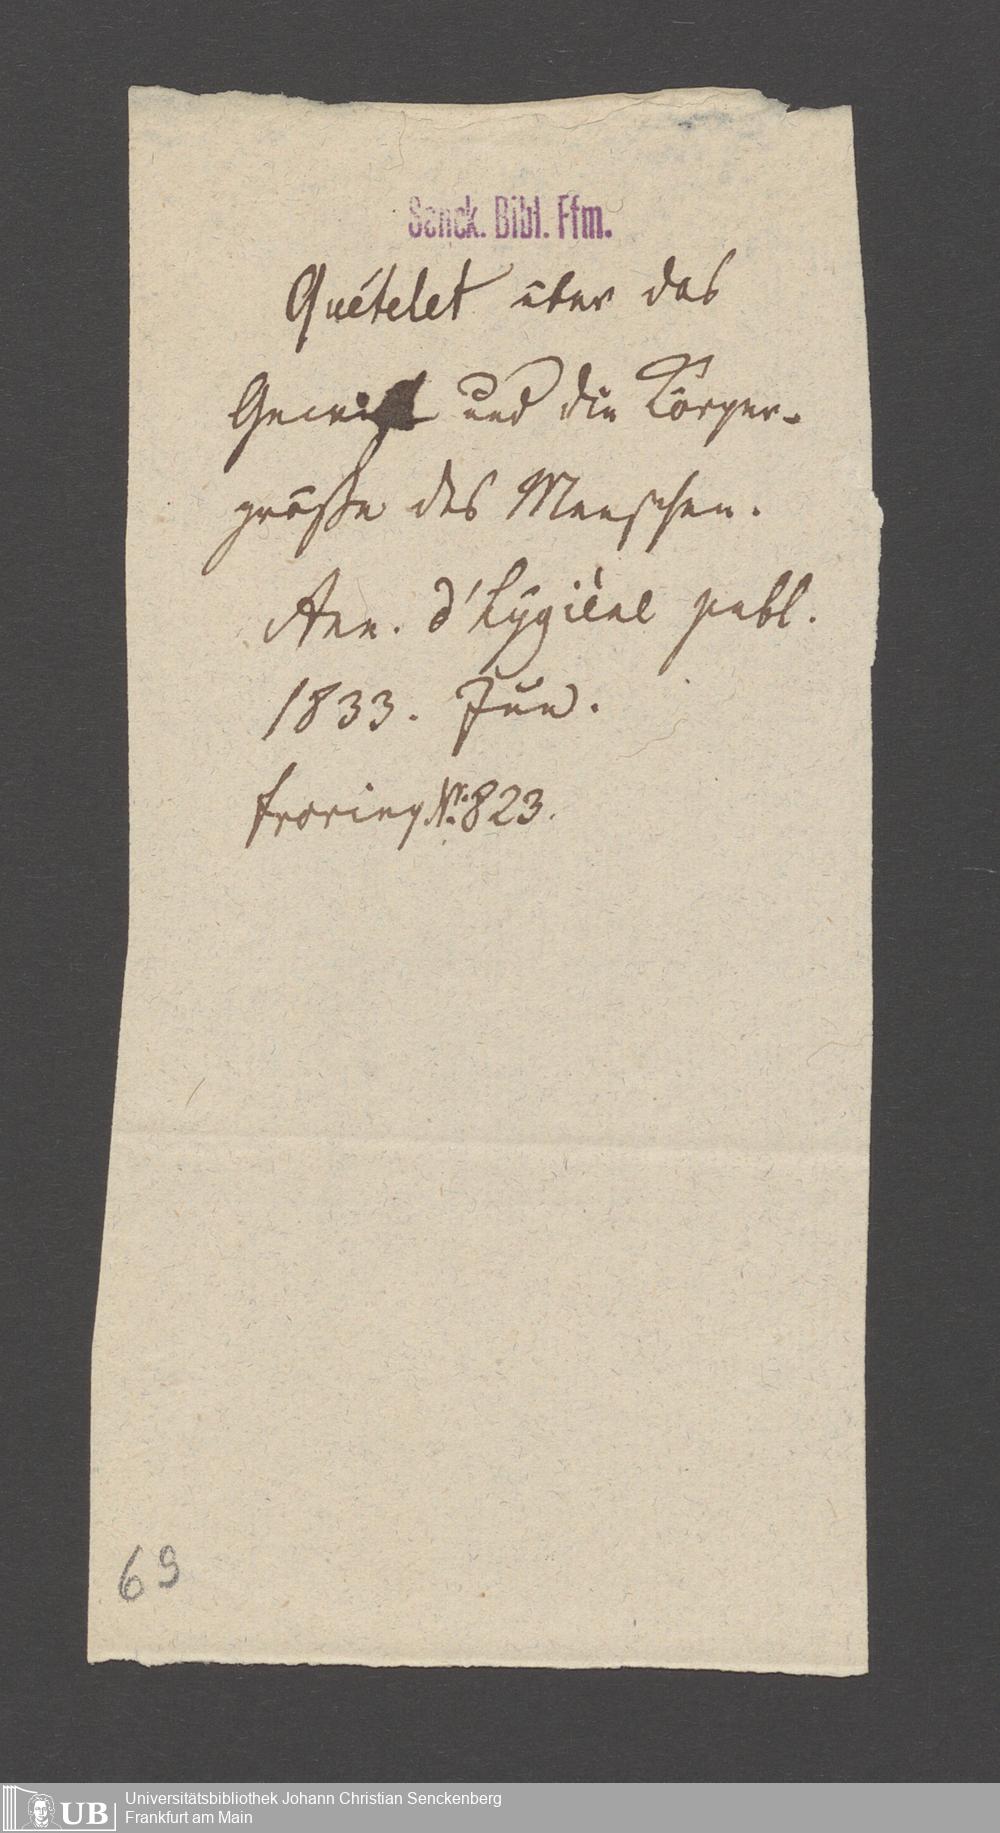 Senck. Bibl. Ffm.
Quételet über das
Gewicht und die Körper-
größe des Menschen.
Ann. d'hygiène publ.
1833. Jun.
froriep Nr. 823.
69
UB
Universitätsbibliothek Johann Christian Senckenberg
Frankfurt am Main